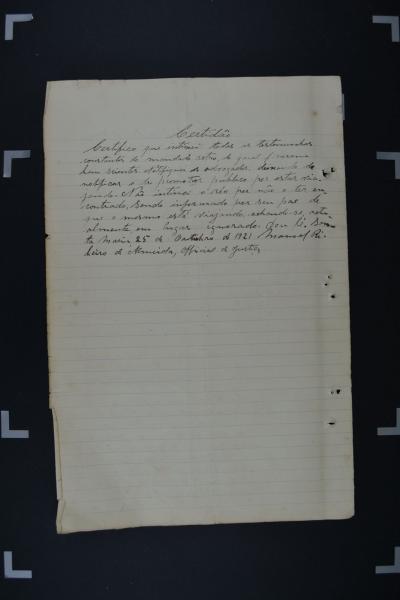 Certidão
Certifico que intimei todas as testemunhas
constantes do mandado retro, do qual ficaram
bem scientes. Notifiquei os advogados, deixando de
notificar o dr promotor publico por estar via-
jando. Não intimei o réo por não o ter en-
contrado, sendo informado por seu pae de
que o mesmo está viajando, achando-se actu-
almente em lugar ignorado. Dou fé. San-
ta Maria, 25 de Outubro de 1921 Manoel Ri-
beiro de Almeida, Official de Justiça